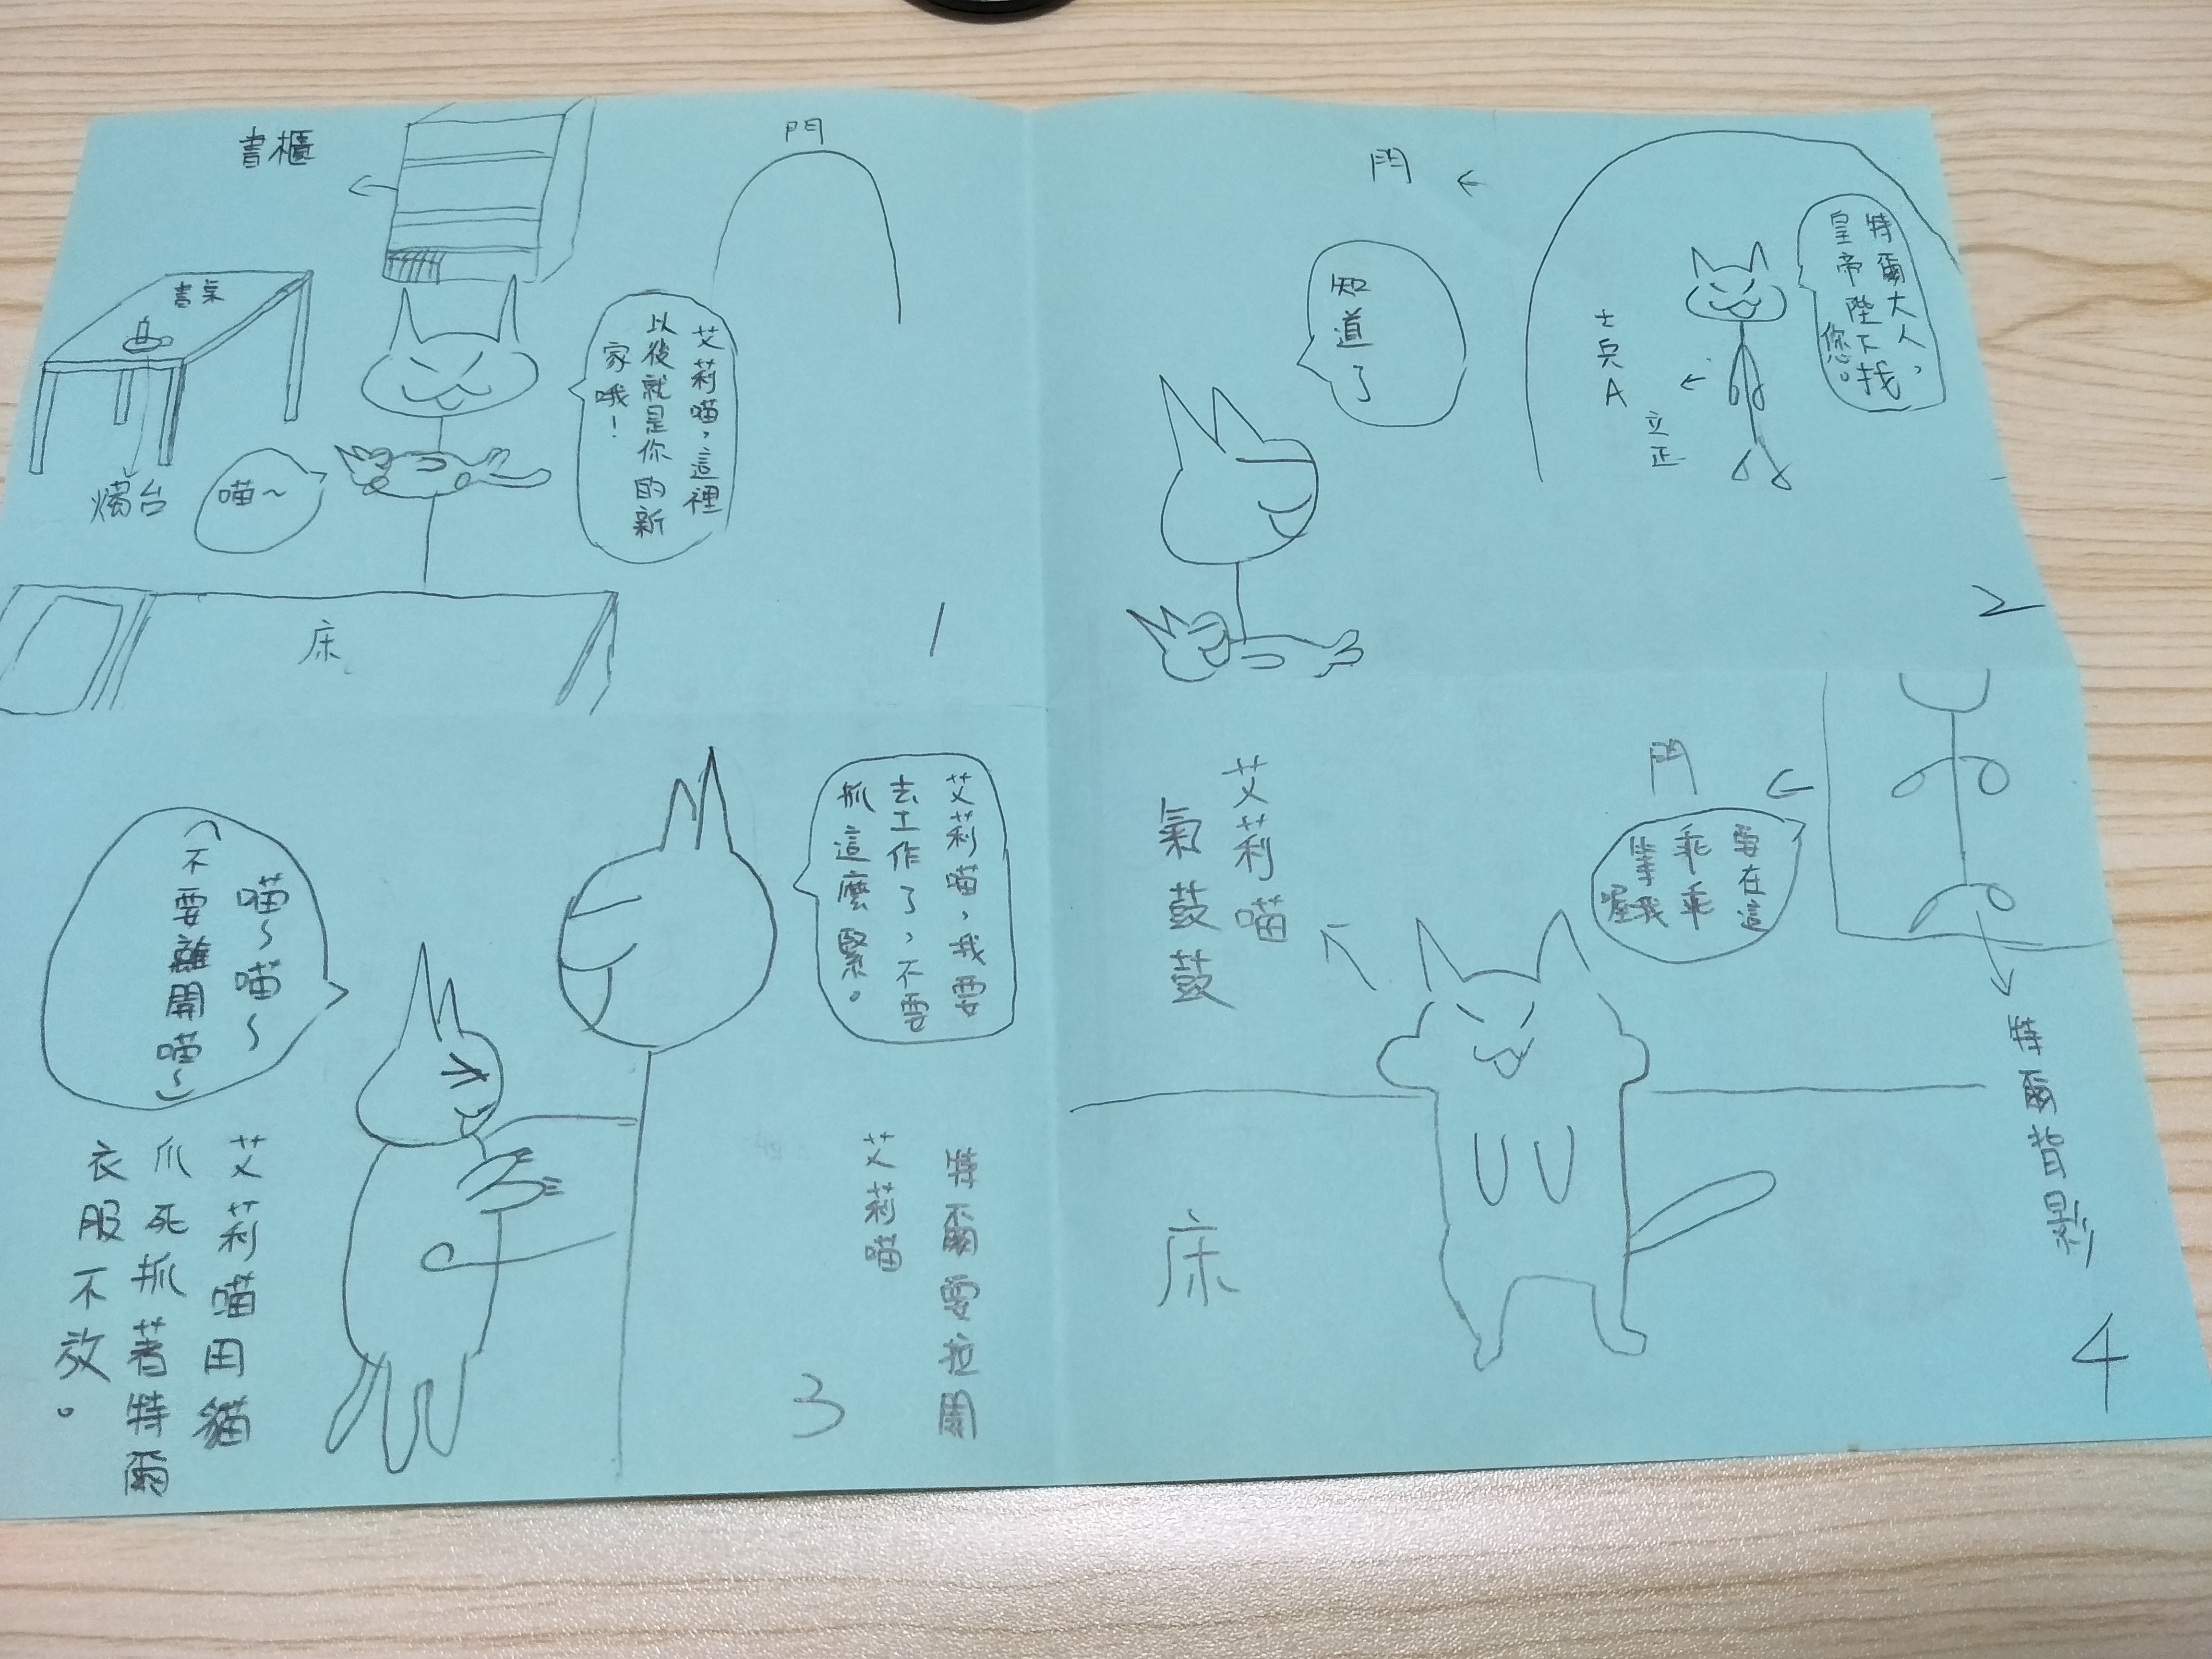 書櫃
門
書桌
燭台
喵~
艾莉喵，這裡
以後就是你的新
家哦！
床
1
門
特爾大人，
皇帝陛下找
您。
知道了
士兵A
立正
2
艾莉喵，我要
去工作了，不要
抓這麼緊。
喵~喵~
(不要離開喵~)
艾莉喵用貓
爪死抓著特爾
衣服不放。
特爾要拉開
艾莉喵
3
門
要在這
乖乖
等我
喔
艾莉喵
氣鼓鼓
特爾背影
床
4